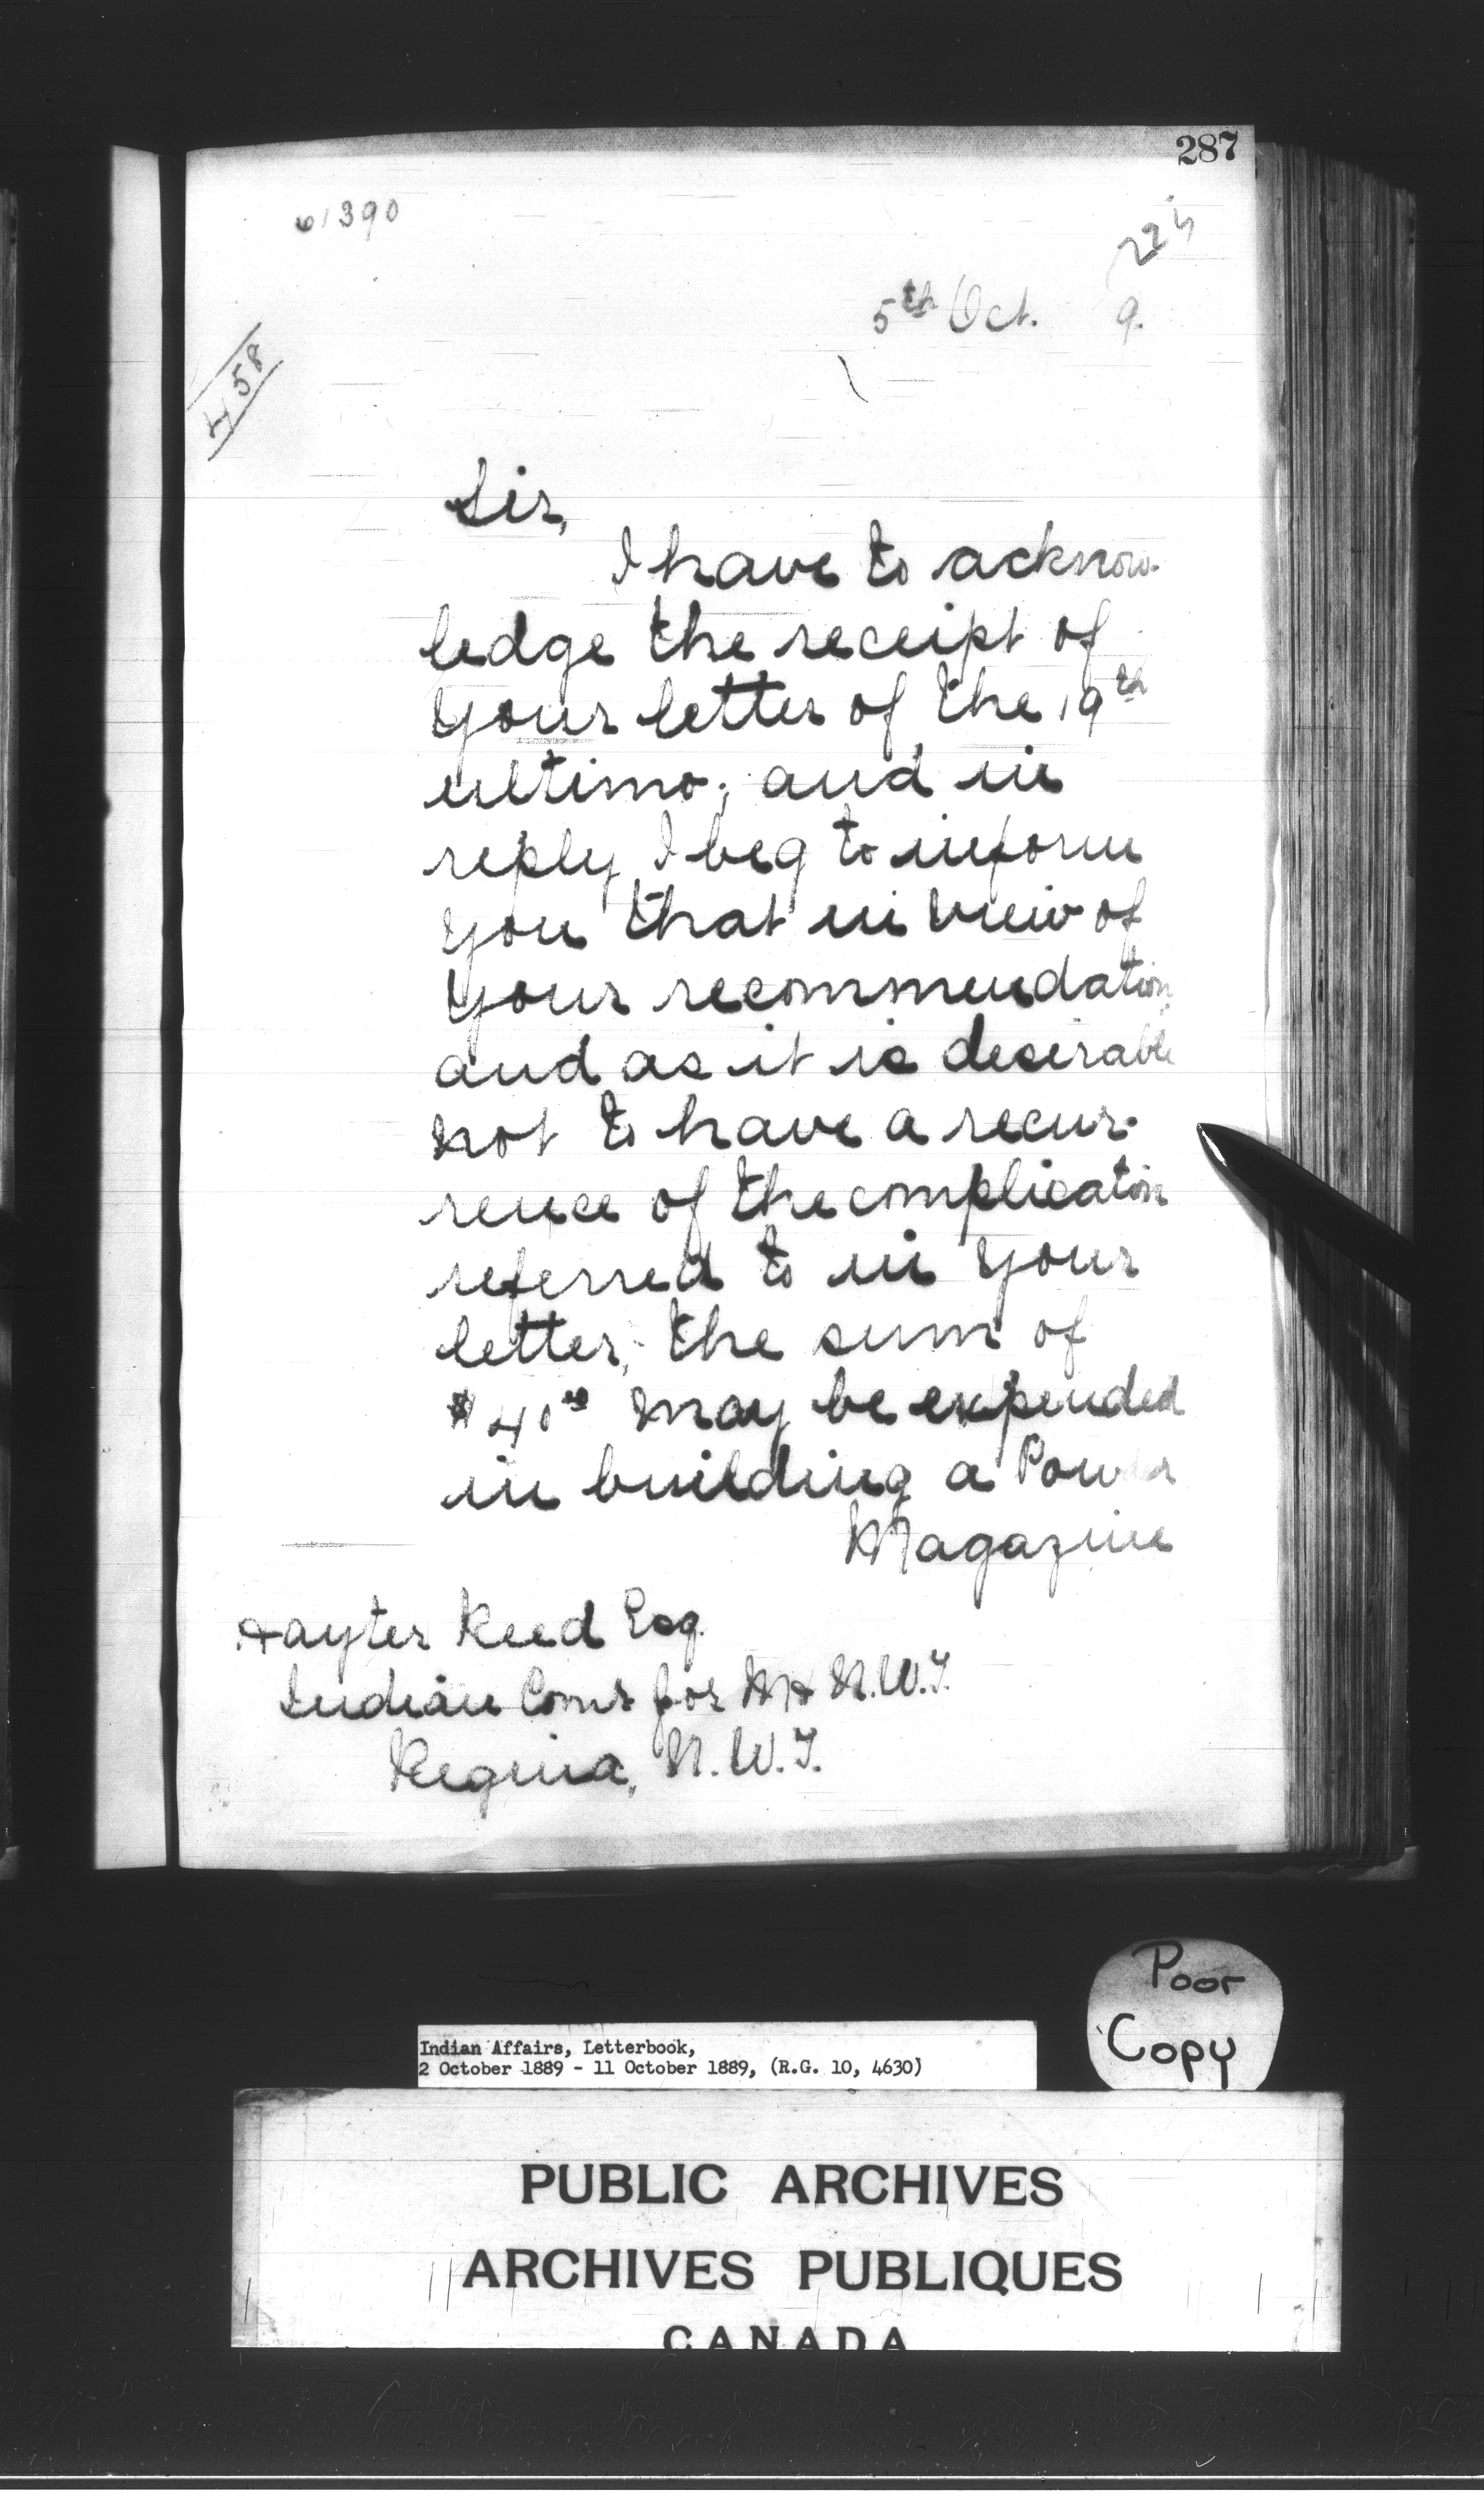 287
61390
224
5th Oct. 9.
458
Sir,
I have to acknow-
ledge the receipt of
your letter of the 19th
ultimo; and in
reply I beg to inform
you that in view of
your recommendation,
and as it is desirable
not to have a recur-
rence of the complication
referred to in your
letter, the sum of
$40 00 may be expended
in building a Powder
Magazine
Hayter Reed Esq.
Indian Comr for Ma & N.W.T.
Regina, N.W.T.
Poor
Copy
Indian Affairs, Letterbook,
2 October 1889 - 11 October 1889, (R.G. 10, 4630)
PUBLIC ARCHIVES
ARCHIVES PUBLIQUES
CANADA